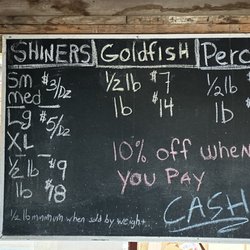 SHINERS GOLDFISH Perc
Sm $3/Dz ½ lb $7 ½ lb
med lb $14 lb
Lg $5/Dz
XL
½ lb $9 10% off when
lb $18 YOU PAY
CASH
½ lb minimum when sold by weight...